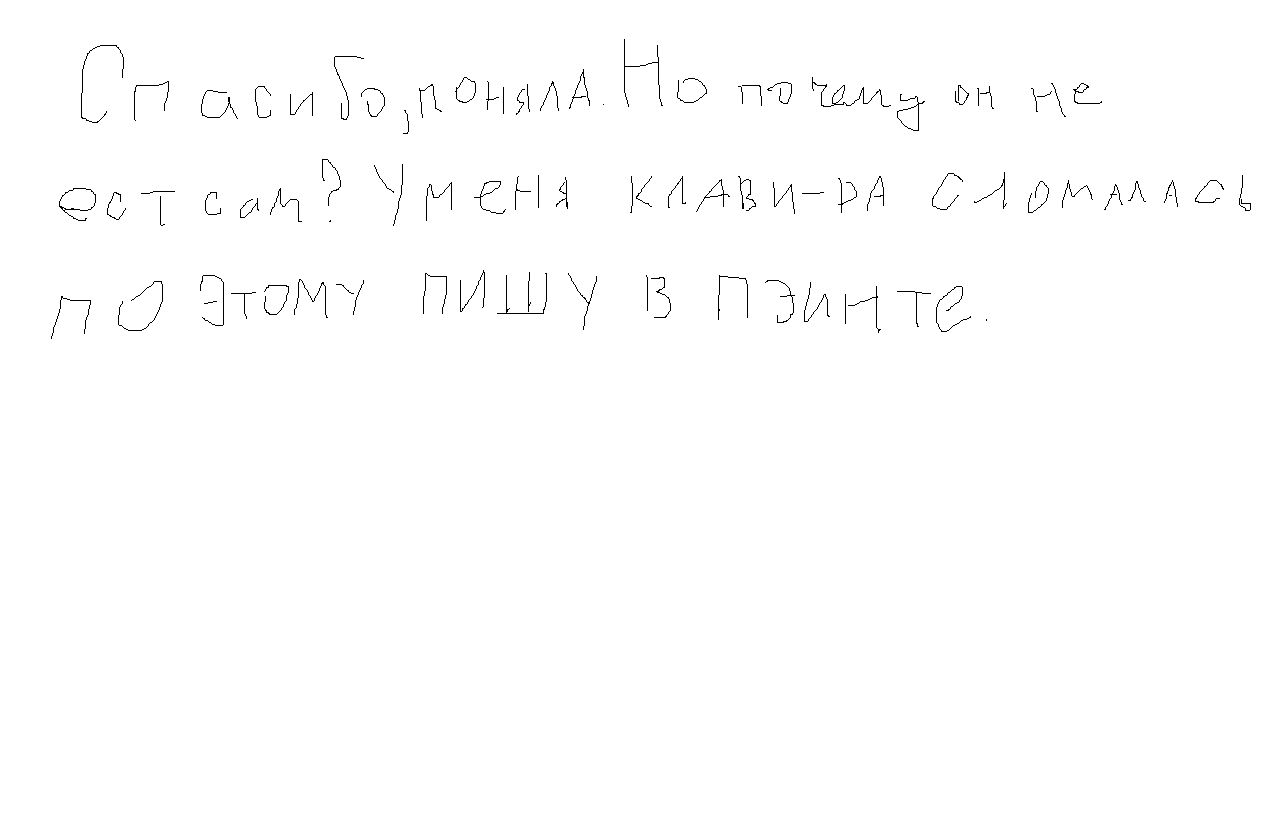 Спасибо, поняла. Но почему он не
ест сам? У меня клави-ра сломалась
по этому пишу в пэинте.